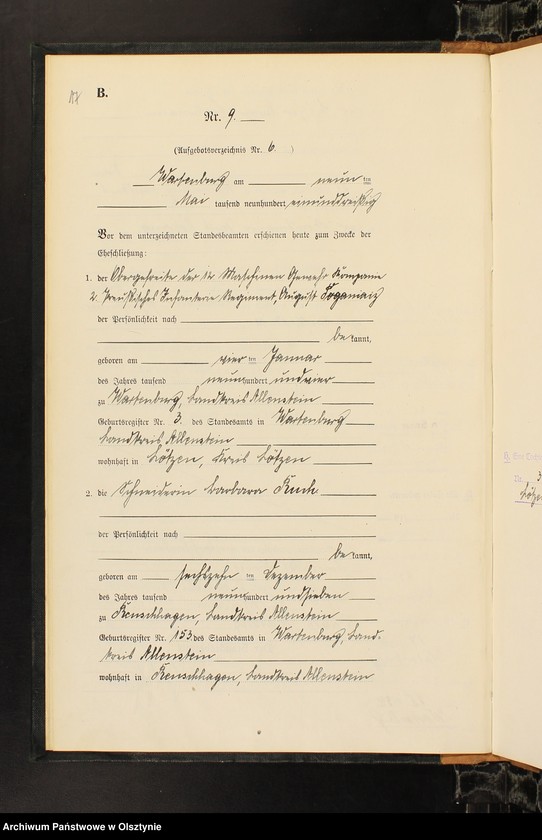 B.
Nr. 9.
(Aufgebotsverzeichnis Nr. 6. )
Wartenburg am neun ten
Mai tausend neunhundert einunddreißig
Vor dem unterzeichneten Standesbeamten erschienen heute zum Zwecke der
Eheschließung:
1. der Obergefreite der 12 Maschinen Gewehr Kompanie
2. Preußisches Infanterie Regiment, August
der Persönlichkeit nach
be kannt,
geboren am vier ten Januar
des Jahres tausend neunhundert undvier
zu Wartenburg, Landkreis Allenstein
Geburtsregister Nr. 3. des Standesamts in Wartenburg
Landkreis Allenstein
wohnhaft in Lötzen, Kreis Lötzen
2. die Schneiderin Barbara
der Persönlichkeit nach
be kannt,
geboren am sechszehn ten Dezember
des Jahres tausend neunhundert undsieben
zu Reuschhagen, Landkreis Allenstein
Geburtsregister Nr. 153 des Standesamts in Wartenburg, Land-
kreis Allenstein
wohnhaft in Reuschhagen, Landkreis Allenstein
Archiwum Państwowe w Olsztynie